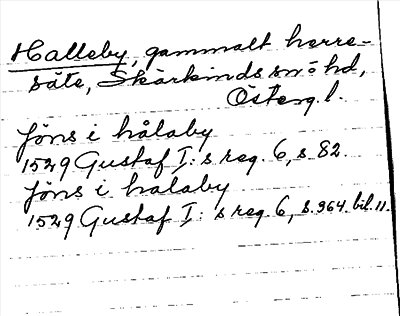 Halleby, gammalt herre-
säte, Skärkinds sn o hd,
Österg. l.
Jöns i hålaby
1529 Gustaf I:s reg. 6, s. 82.
Jöns i halaby
1529 Gustaf I:s reg. 6, s. 364. bil. 11.